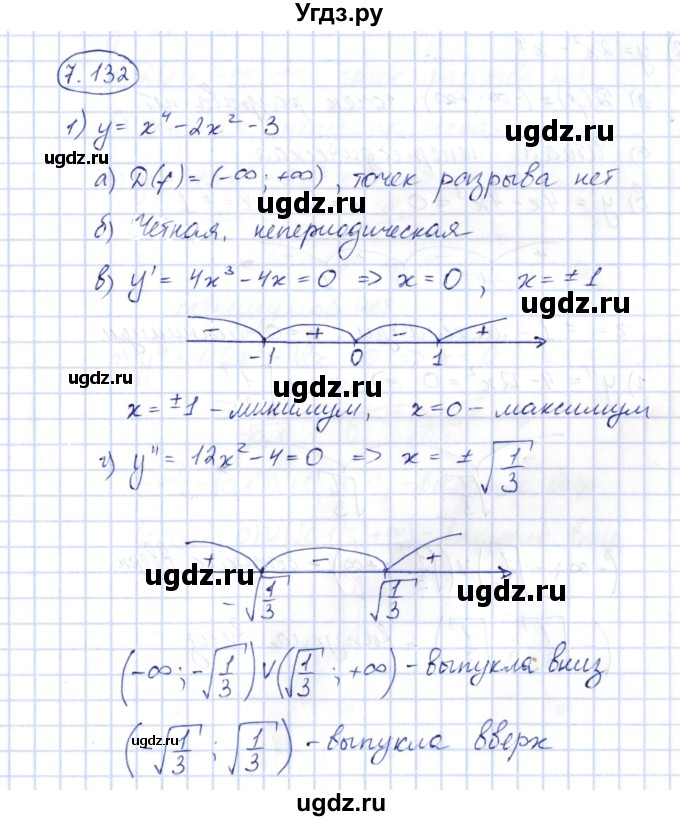 Угдз.ру
7.132
1) y = x⁴ - 2x² - 3
ugdz.ru
ugdz.ru
а) D(f) = (-∞; +∞), точек разрыва нет
ugdz.ru
б) Четная, непериодическая
в) y' = 4x³ - 4x = 0 => x = 0, x = ±1
ugdz.ru
- + - +
-1 0 1
ugdz.ru
ugdz.ru
x = ±1 - минимум, x = 0 - максимум
г) y'' = 12x² - 4 = 0 => x = ±√(1/3)
ugdz.ru
+ - +
ugdz.ru
ugdz.ru
-√(1/3) √(1/3)
(-∞; -√(1/3)) ∨ (√(1/3); +∞) - выпукла вниз
ugdz.ru
ugdz.ru
(-√(1/3); √(1/3)) - выпукла вверх
ugdz.ru
ugdz.ru